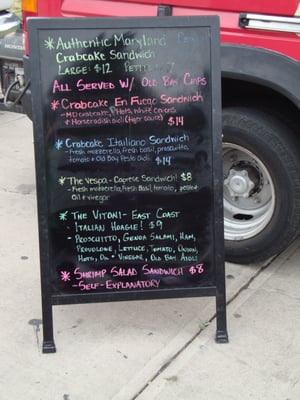 * Authentic Maryland
Crabcake Sandwich
Large: $12 Petite: 7
All Served w/ Old Bay Chips
* Crabcake En Fuego Sandwich
- MD crabcake, Hots, white onions
+ Horseradish aioli (tiger sauce) $14
* Crabcake Italiano Sandwich
- Fresh mozzerella, fresh basil, proscuitto,
tomato + Old Bay Pesto Aioli $14
* The Vespa - Caprese Sandwich! $8
- Fresh mozzerella, fresh Basil, tomato, pesto
Oil + vinegar
* The Vitoni - East Coast
Italian Hoagie! $9
- Proscuitto, Genoa Salami, Ham,
Provolone, Lettuce, Tomato, Onion,
Hots, Oil + Vinegar, Old Bay Aioli
* Shrimp Salad Sandwich $8
- Self-Explanatory